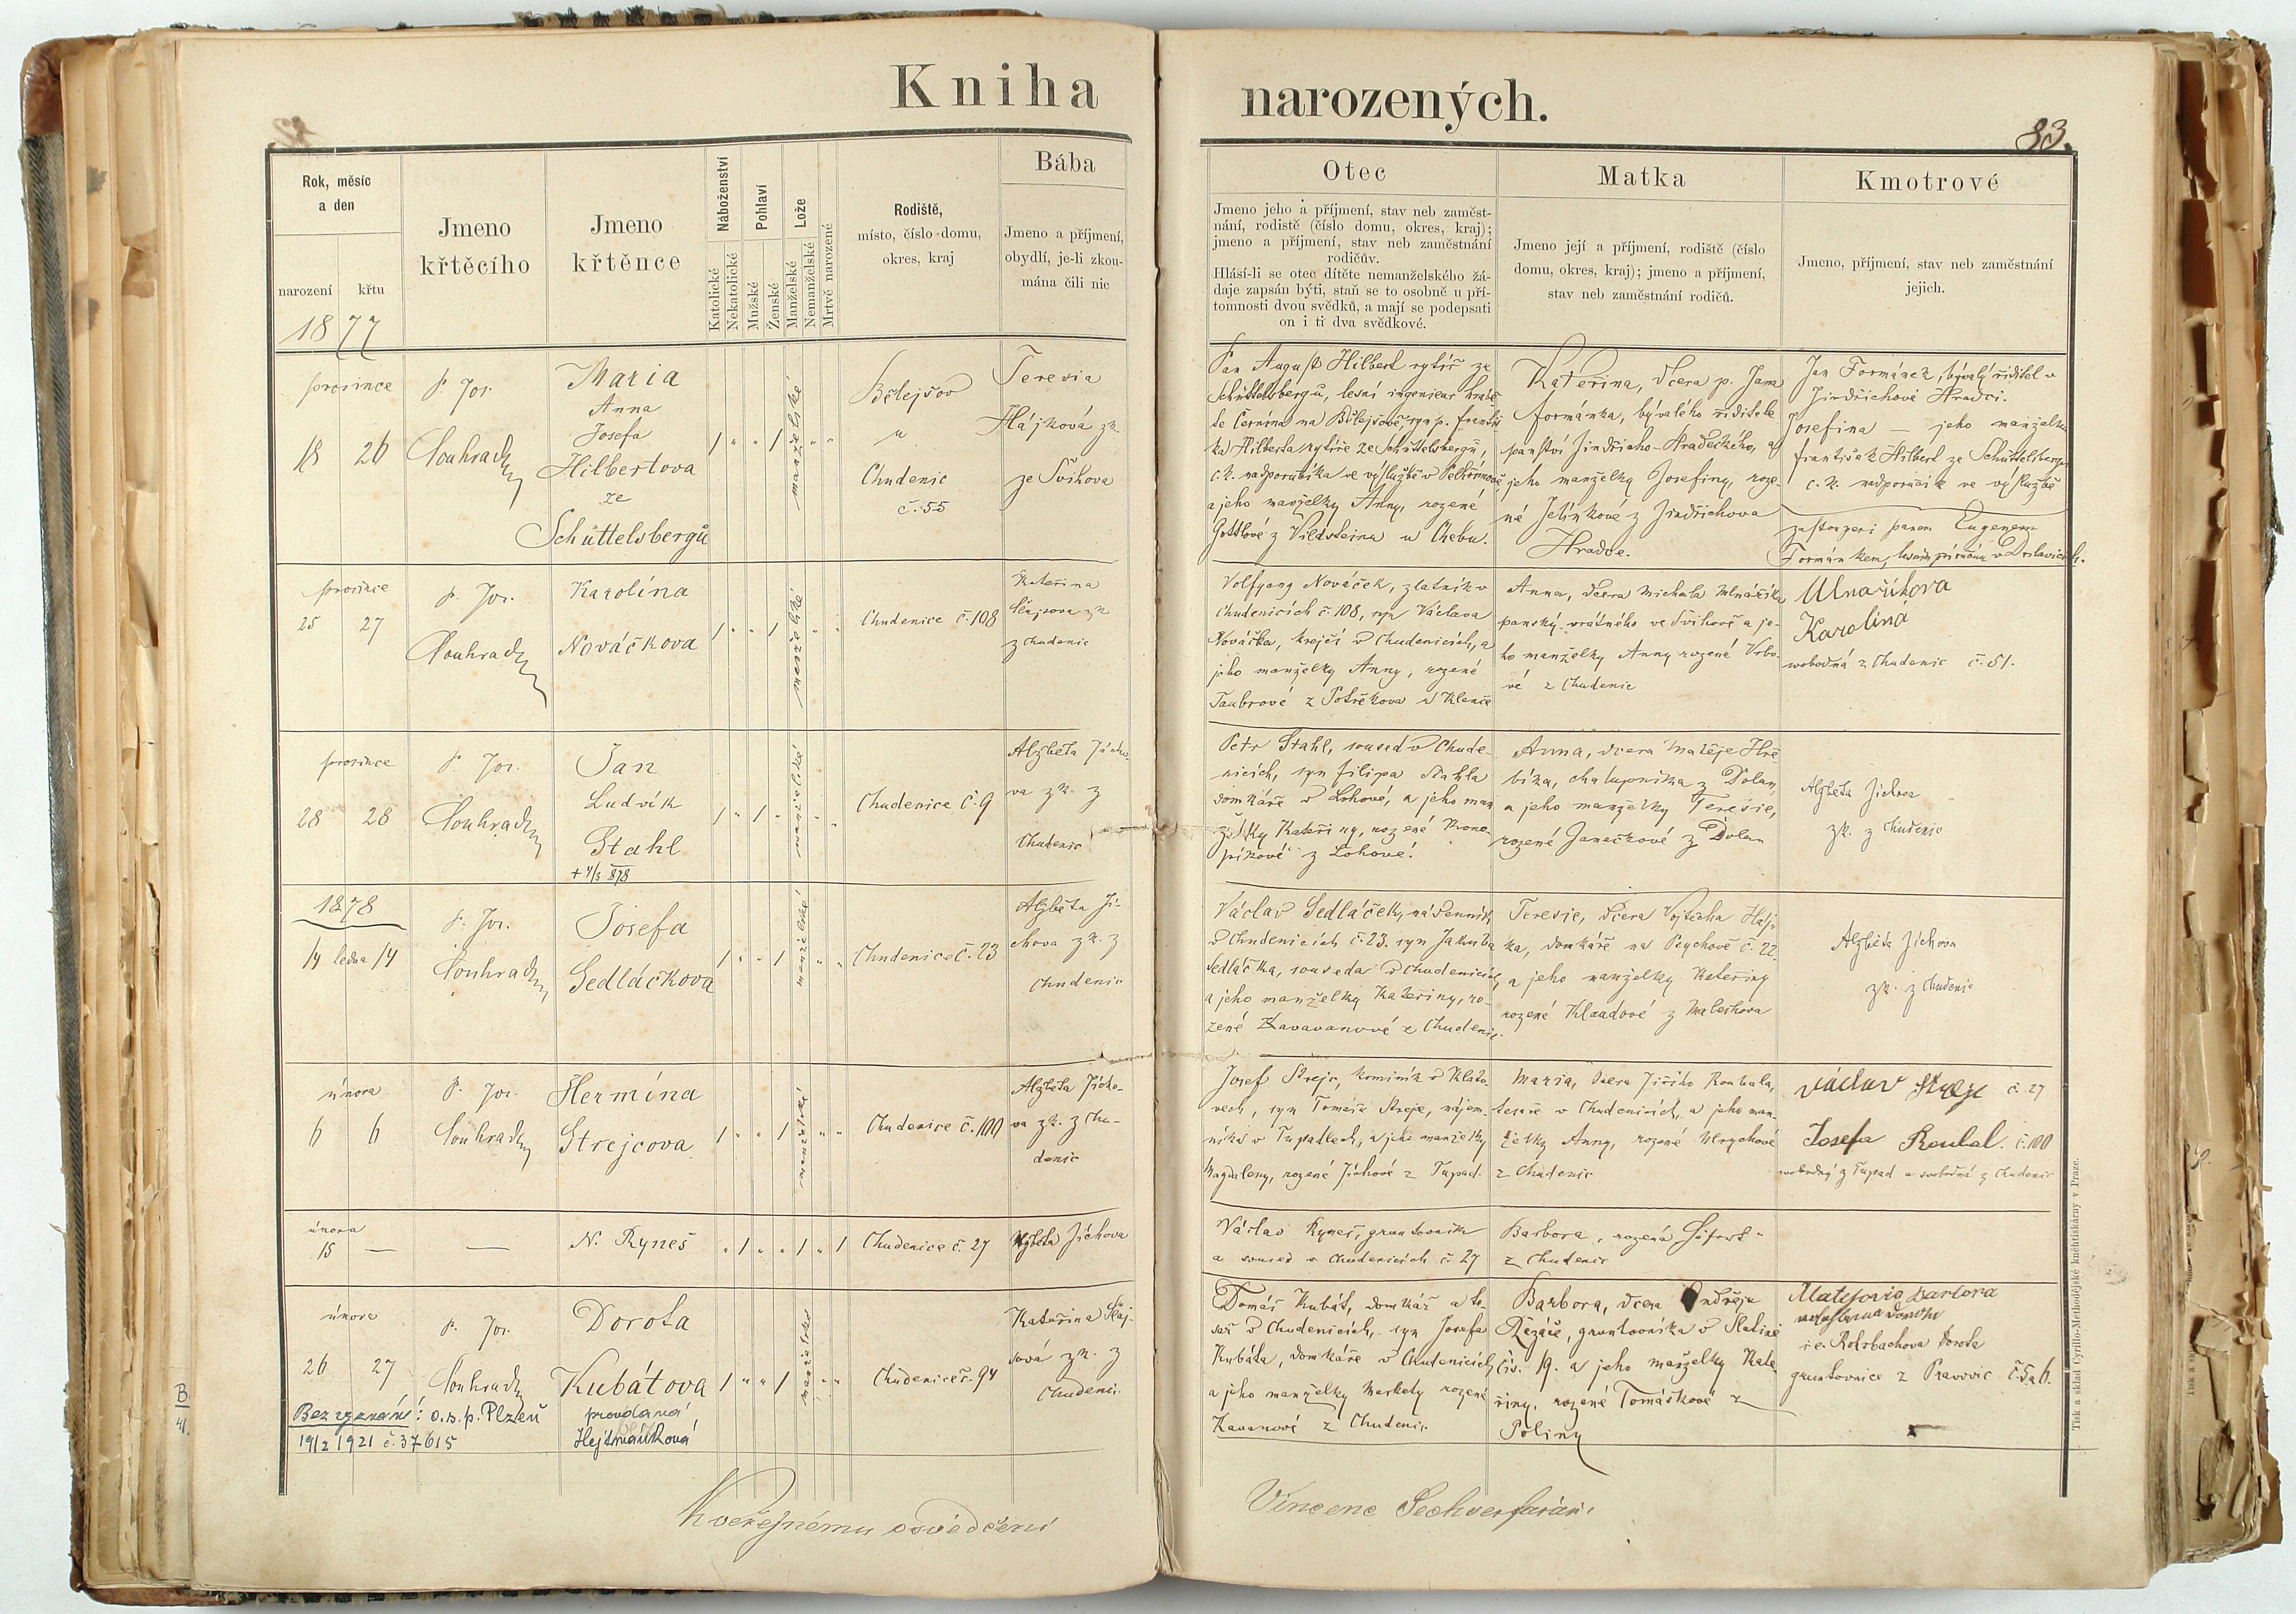 Kniha
narozených.
83.
Rok, měsíc
a den
narození křtu
1877
Jmeno
křtěcího
Jmeno
křtěnce
Náboženství
Katolické
Nekatolické
Pohlaví
Mužské
Ženské
Lože
Manželské
Nemanželské
Mrtvě narozené
Rodiště,
místo, číslo domu,
okres, kraj
Bába
Jmeno a příjmení,
obydlí, je-li zkou-
mána čili nic
Otec
Jmeno jeho a příjmení, stav neb zaměst-
nání, rodiště (číslo domu, okres, kraj);
jmeno a příjmení, stav neb zaměstnání
rodičův.
Hlásí-li se otec dítěte nemanželského žá-
daje zapsán býti, staň se to osobně u pří-
tomnosti dvou svědků, a mají se podepsati
on i ti dva svědkové.
Matka
Jmeno její a příjmení, rodiště (číslo
domu, okres, kraj); jmeno a příjmení,
stav neb zaměstnání rodičů.
Kmotrové
Jmeno, příjmení, stav neb zaměstnání
jejich.
prosince
18 26
P. Jos.
Souhrady
Maria
Anna
Josefa
Hilbertova
ze
Schüttelsbergů
manželské
Bělejšov
u
Chudenic
č. 55
Teresia
Hájková zk.
ze Švihova
Pan August Hilbert rytíř ze
Schüttelsbergů, lesní ingenieur hraběte
Černína na Bělejšově, syn p. Františ-
ka Hilberta rytíře ze Schüttelsbergů,
c. k. nadporučíka ve výslužbě v Pelhřimově,
a jeho manželky Anny, rozené
Gottlové z Vildsteina u Chebu.
Kateřina, dcera p. Jana
Formánka, bývalého ředitele
panství Jindřicho-Hradeckého, a
jeho manželky Josefiny, roze-
né Jelínkové z Jindřichova
Hradce.
Jan Formánek, bývalý ředitel v
Jindřichově Hradci.
Josefina — jeho manželka
František Hilbert ze Schüttelsbergů
c. k. nadporučík ve výslužbě
zastoupeni panem Eugenem
Formánkem,
prosince
25 27
P. Jos.
Souhrady
Karolína
Nováčkova
manželské
Chudenice č. 108
Kateřina
zk
z Chudenic
Volfgang Nováček, zlatník v
Chudenicích č. 108, syn Václava
Nováčka, krejčí v Chudenicích, a
jeho manželky Anny, rozené
Taubrové z Klenče
Anna, dcera Michala Mlnaříka
panský vrátného ve Švihově a je-
ho manželky Anny rozené Vrbo-
vé z Chudenic
Mlnaříkova
Karolina
svobodná z Chudenic č. 51.
prosince
28 28
P. Jos.
Souhrady
Jan
Ludvík
Stahl
manželské
Chudenice č. 9
Alžběta Jícho-
va zk. z
Chudenic
Petr Stahl, soused v Chude-
nicích, syn Filipa Stahla
domkáře v Lohové, a jeho man
želky Kateřiny, rozené Kono-
píkové z Lohové.
Anna, dcera Matěje Hře-
bíka, chalupníka z Dolan,
a jeho manželky Teresie,
rozené Janečkové z Dolan
Alžběta Jíchova
zk. z Chudenic
1878
14 ledna 14
P. Jos.
Souhrady
Josefa
Sedláčkova
manželské
Chudenice č. 23
Alžběta Jí-
chova zk. z
Chudenic
Václav Sedláček, nádenník
v Chudenicích č. 23. syn Jakuba
Sedláčka, souseda v Chudenicích,
a jeho manželky Kateřiny, ro-
zené Kavanové z Chudenic.
Teresie, dcera Vojtěcha Háj-
ka, domkáře na Psychově č. 22
a jeho manželky Kateřiny
rozené z Malechova
Alžběta Jíchova
zk. z Chudenic
února
6 6
P. Jos.
Souhrady
Hermína
Strejcova
manželské
Chudenice č. 100
Alžběta Jícho-
va zk. z Chu-
denic
Josef Strejc, kominík v Klato-
vech, syn Tomáše Strejce, nájem-
níka v Tupadlech, a jeho manželky
Magdaleny, rozené Jíchové z Tupad.
Maria, dcera Jiřího Roubala,
tesaře v Chudenicích, a jeho man-
želky Anny, rozené Ulrychové
z Chudenic
Václav Strejc č. 27
Josefa Roubal. č. 100
svobodný z Tupad a svobodná z Chudenic
února
15 —
—
N. Ryneš
Chudenice č. 27
Alžběta Jíchova
Václav Ryneš, gruntovník
a soused v Chudenicích č. 27
Barbora, rozená
z Chudenic
února
26 27
P. Jos.
Souhrady
Dorota
Kubátova
provdaná
Hejtmánková
Bez vyznání: o. s. p. Plzeň
19/2 1921 č. 37615
manželské
Chudenice č. 94
Kateřina Šlaj-
sová zk. z
Chudenic.
Tomáš Kubát, domkář a te-
sař v Chudenicích, syn Josefa
Kubáta, domkáře v Chudenicích,
a jeho manželky Markety rozené
Kavanové z Chudenic.
Barbora, dcera Ondřeje
Řezáče, gruntovníka v Slatině
čís. 19. a jeho manželky Kate
řiny, rozené Tomáškové z
Poliny
Barbora
i. e. Rohrbachova Dorota
gruntovnice z Pravovic č. 5 a 6.
K veřejnému osvědčení
Vincenc
B
41.
Tisk a sklad Cyrillo-Methodějské knihtiskárny v Praze.